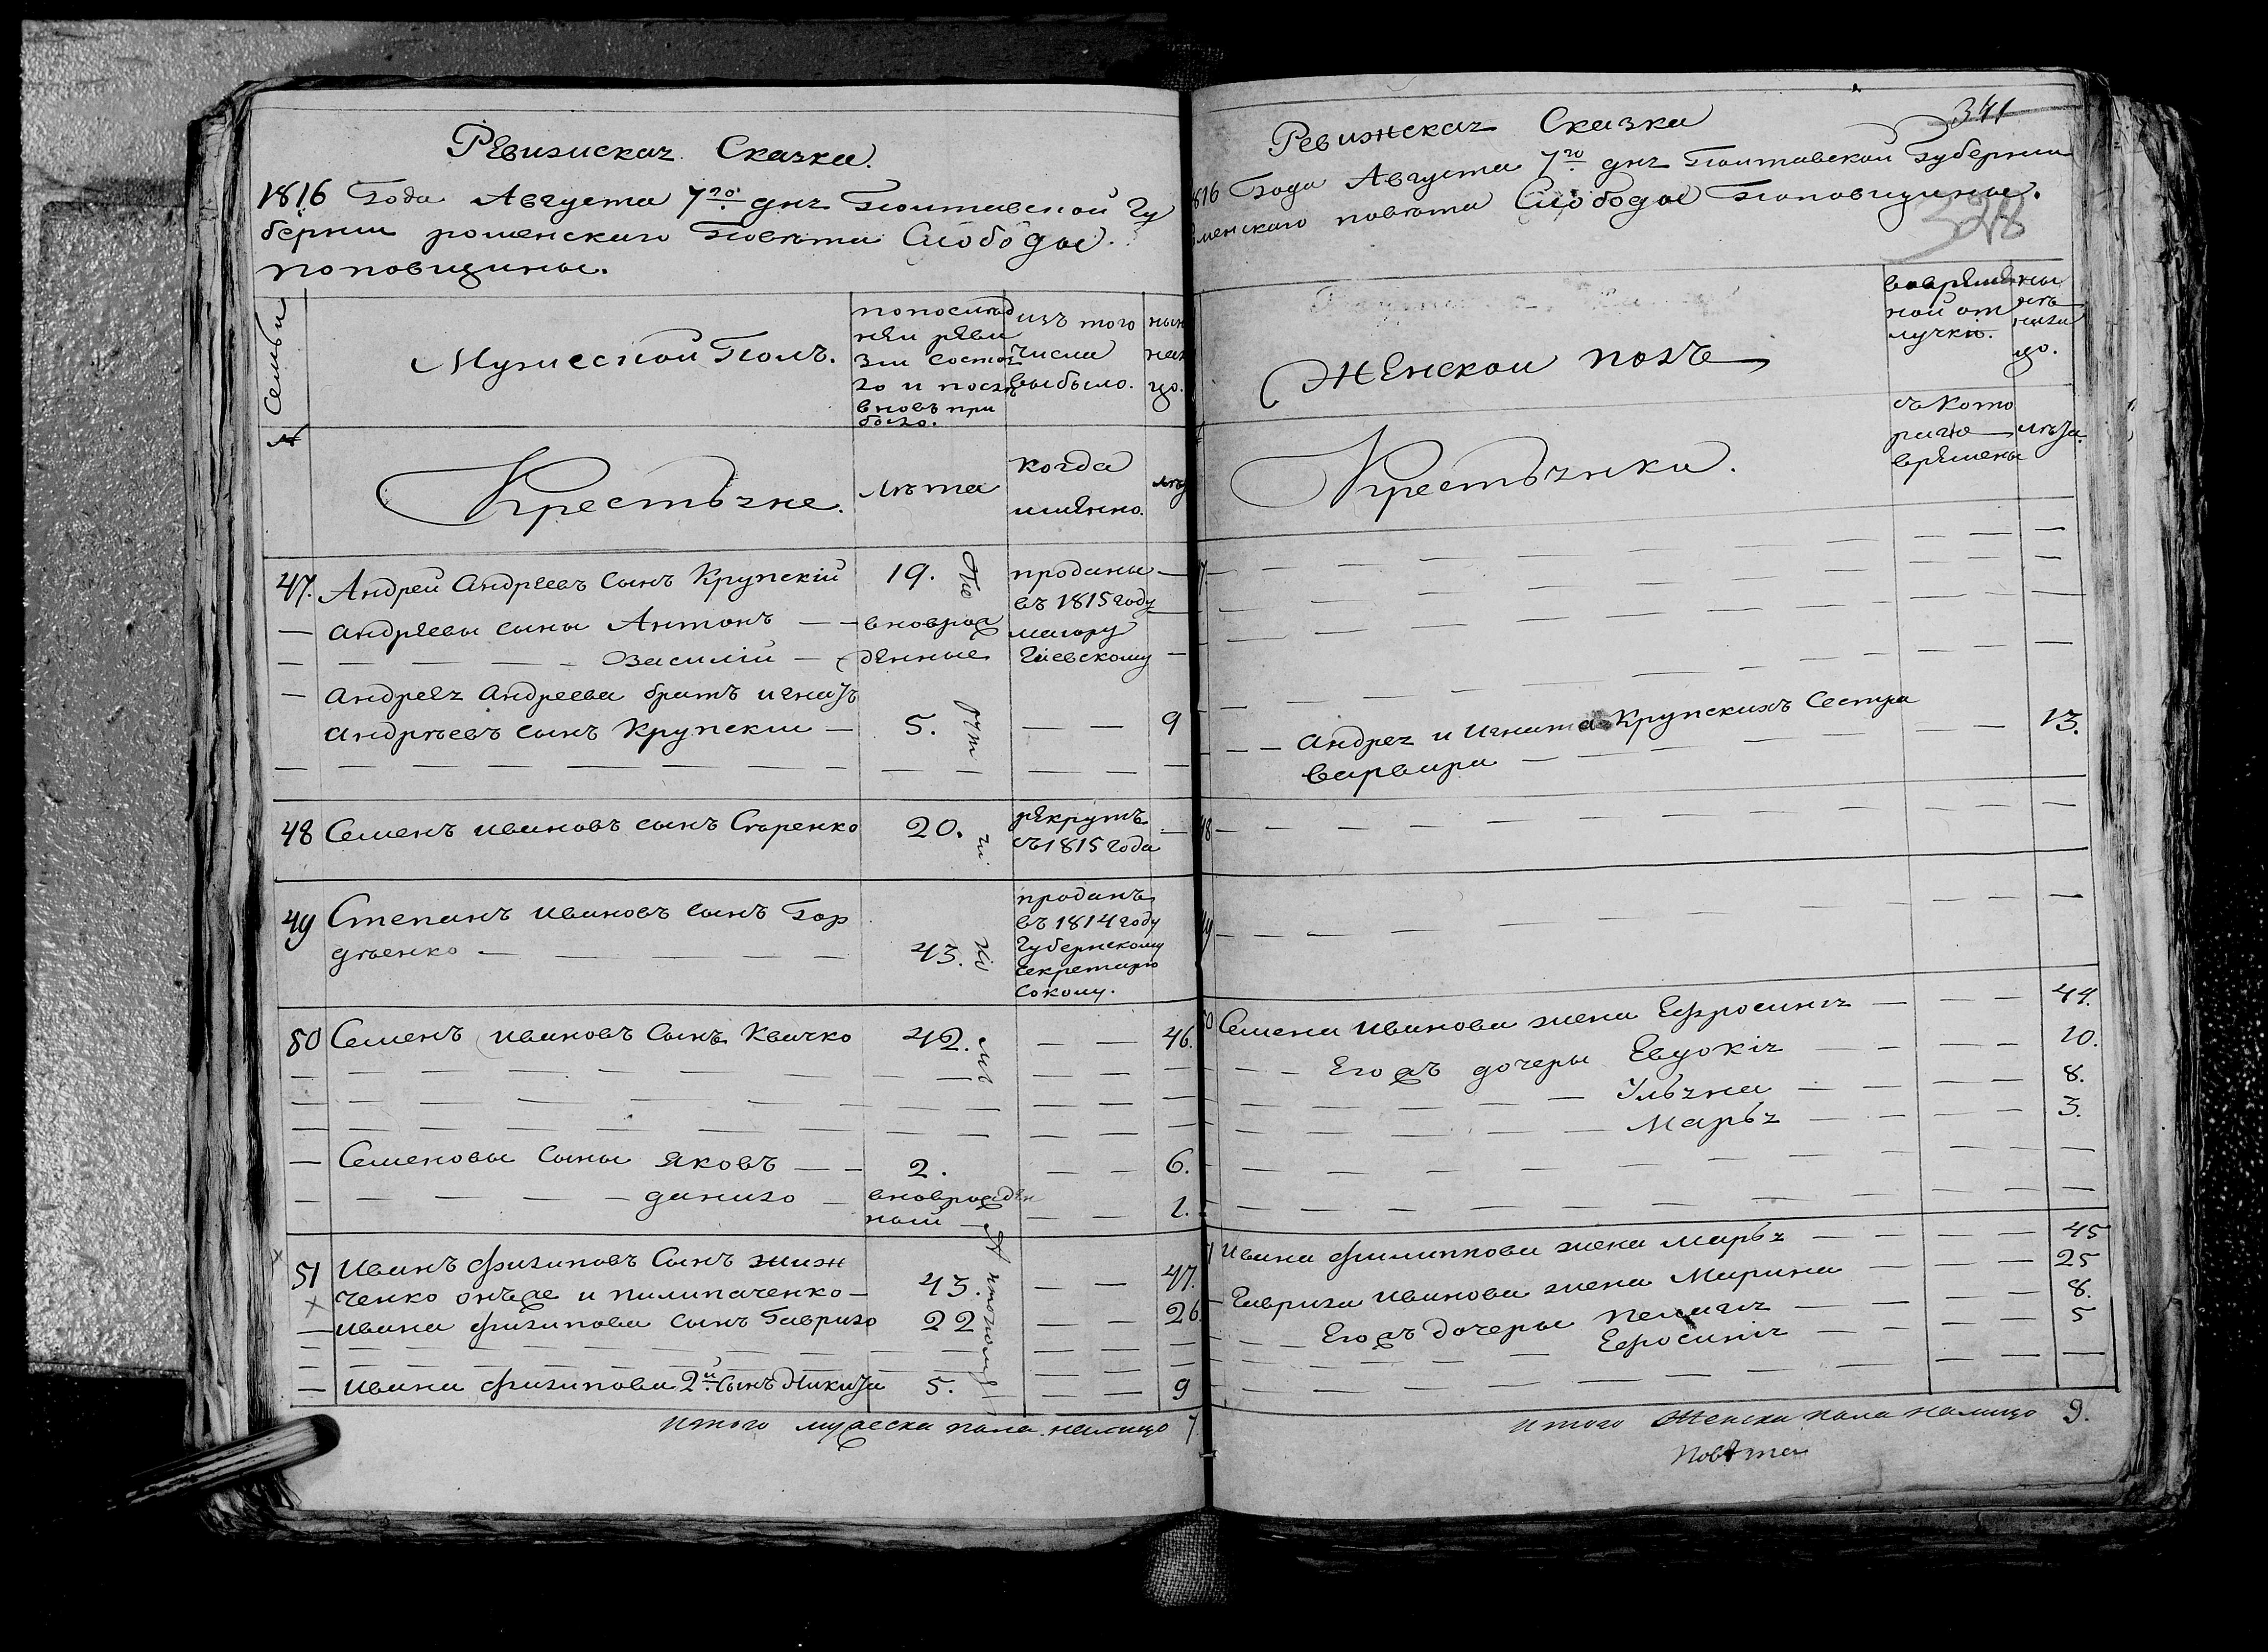 Ревизиская Сказка.
1816 Года Августа 7го дня Полтавской Гу
бернии роменского Повета Слободы
поповщины.
Семьи
Мужеской Полъ.
попослед
ней реви
зии состоя
ло и после
вновь при
было.
изъ того
числа
выбыло.
Крестьяне.
лета
когда
именно.
47. Андрей Андреевъ сынъ Крупскій 19. проданы
въ 1815 году
— Андреевы сыны Антонъ — — вноврож маіору
— — — — Василій — денные Гіевскому —
— Андрея Андреева братъ игнатъ
Андреевъ сынъ Крупскіи — 5. — — 9
48 Семенъ ивановъ сынъ Старенко 20. рекрутъ
съ 1815 года
49 Степанъ ивановъ сынъ Гор
дѣенко — — — 43. проданъ
въ 1814 году
Губернскому
секретарю
Соколу.
50 Семенъ ивановъ Сынъ Квачко 42. — — 46.
— Семеновы Сыны Яковъ — — 2. — — 6.
— — — — — данило — вноврожден
ный — — 1.
51 Иванъ филиповъ Сынъ
ченко онъже и пилипаченко — 43. — — 47.
— ивана филипова сынъ Гаврило 22 — — 26
— ивана филипова 2й сынъ Никита 5. — — 9
итого мужеска пола налицо 7
341
Ревижская Сказка
1816 Года Августа 7го дня Полтавской Губернии
менского повета Слободы Поповщины.
328
Женскои полъ
вовремен
ной от
лучки.
ны
не
нали
цо.
Крестьянки.
съ кото
раго
времены
лѣта
— — Андрея и Игната Крупскихъ Сестра
Варвара — — — 13.
Семена Иванова жена Ефросинія — — — 44.
— — Его жъ дочеры Евдокія — — — 10.
Ульяна — — — 8.
Марья — — — 3.
Ивана филиппова жена марья — — — 45
Гаврила Иванова жена Марина — — — 25
Его жъ дочеры пелагія — — — 8.
Ефросинія — — — 5
итого Женска пола налицо 9.